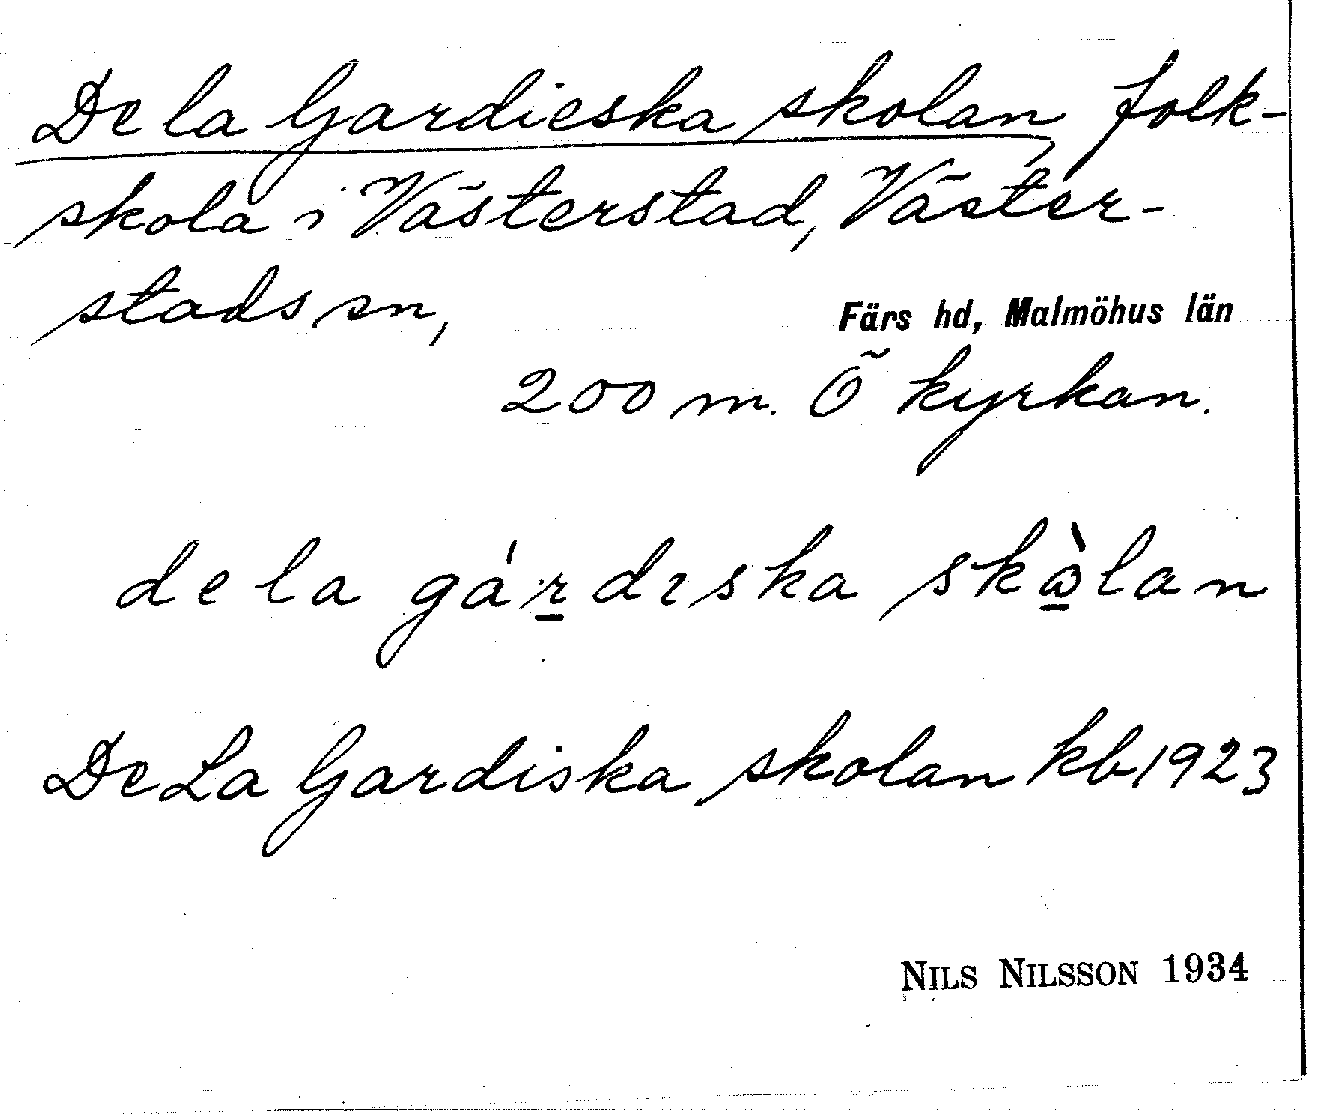 De la Gardieska skolan folk-
skola i Västerstad, Väster-
stads sn,
Färs hd, Malmöhus län
200 m. Ö kyrkan.
de la gár̲dıska skὼ̲lan
De La Gardiska skolan kb 1923
NILS NILSSON 1934